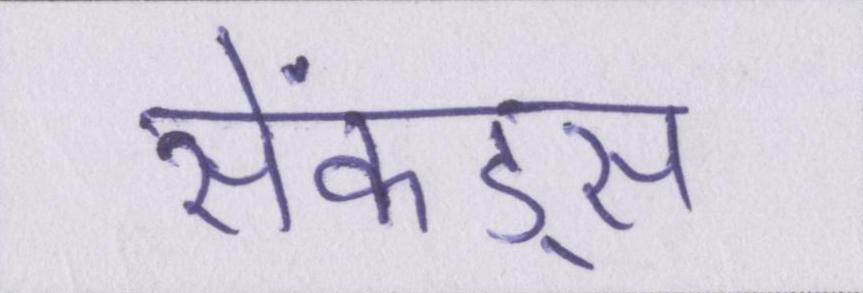 सेंकड्स